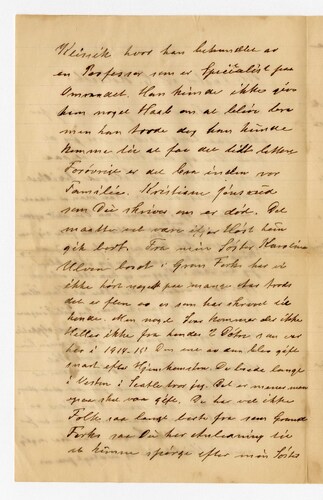 Klinik hvor han behandles av
en Professor som er Specialist paa
Omraadet. Han kunde ikke give
ham noget Haab om at blive bra
men han troede dog han kunde
komme til at faa det lidt lettere
Forøvrigt er det bra inden vor
Familie. Kristian
som Du skriver om er død. Det
maatte vist være efter Høst han
gik bort. Fra min Søster Karoline
Ulven bosat i Gran Forks har vi
ikke hørt noget paa mange aar trods
det er flere av os som har skrevet til
hende. Men noget Svar kommer der ikke
Heller ikke fra hendes 2 Døtre som var
her i 1914-15 Om en av dem blev gift
snart efter Hjemkomsten De boede længe
i Vesten i Seatle tror jeg. Det er mange
paa skal være gift. Du har vel ikke
Folk saa langt borte fra som Grand
Forks saa Du har Anledning til
at kunne spørge efter min Søster